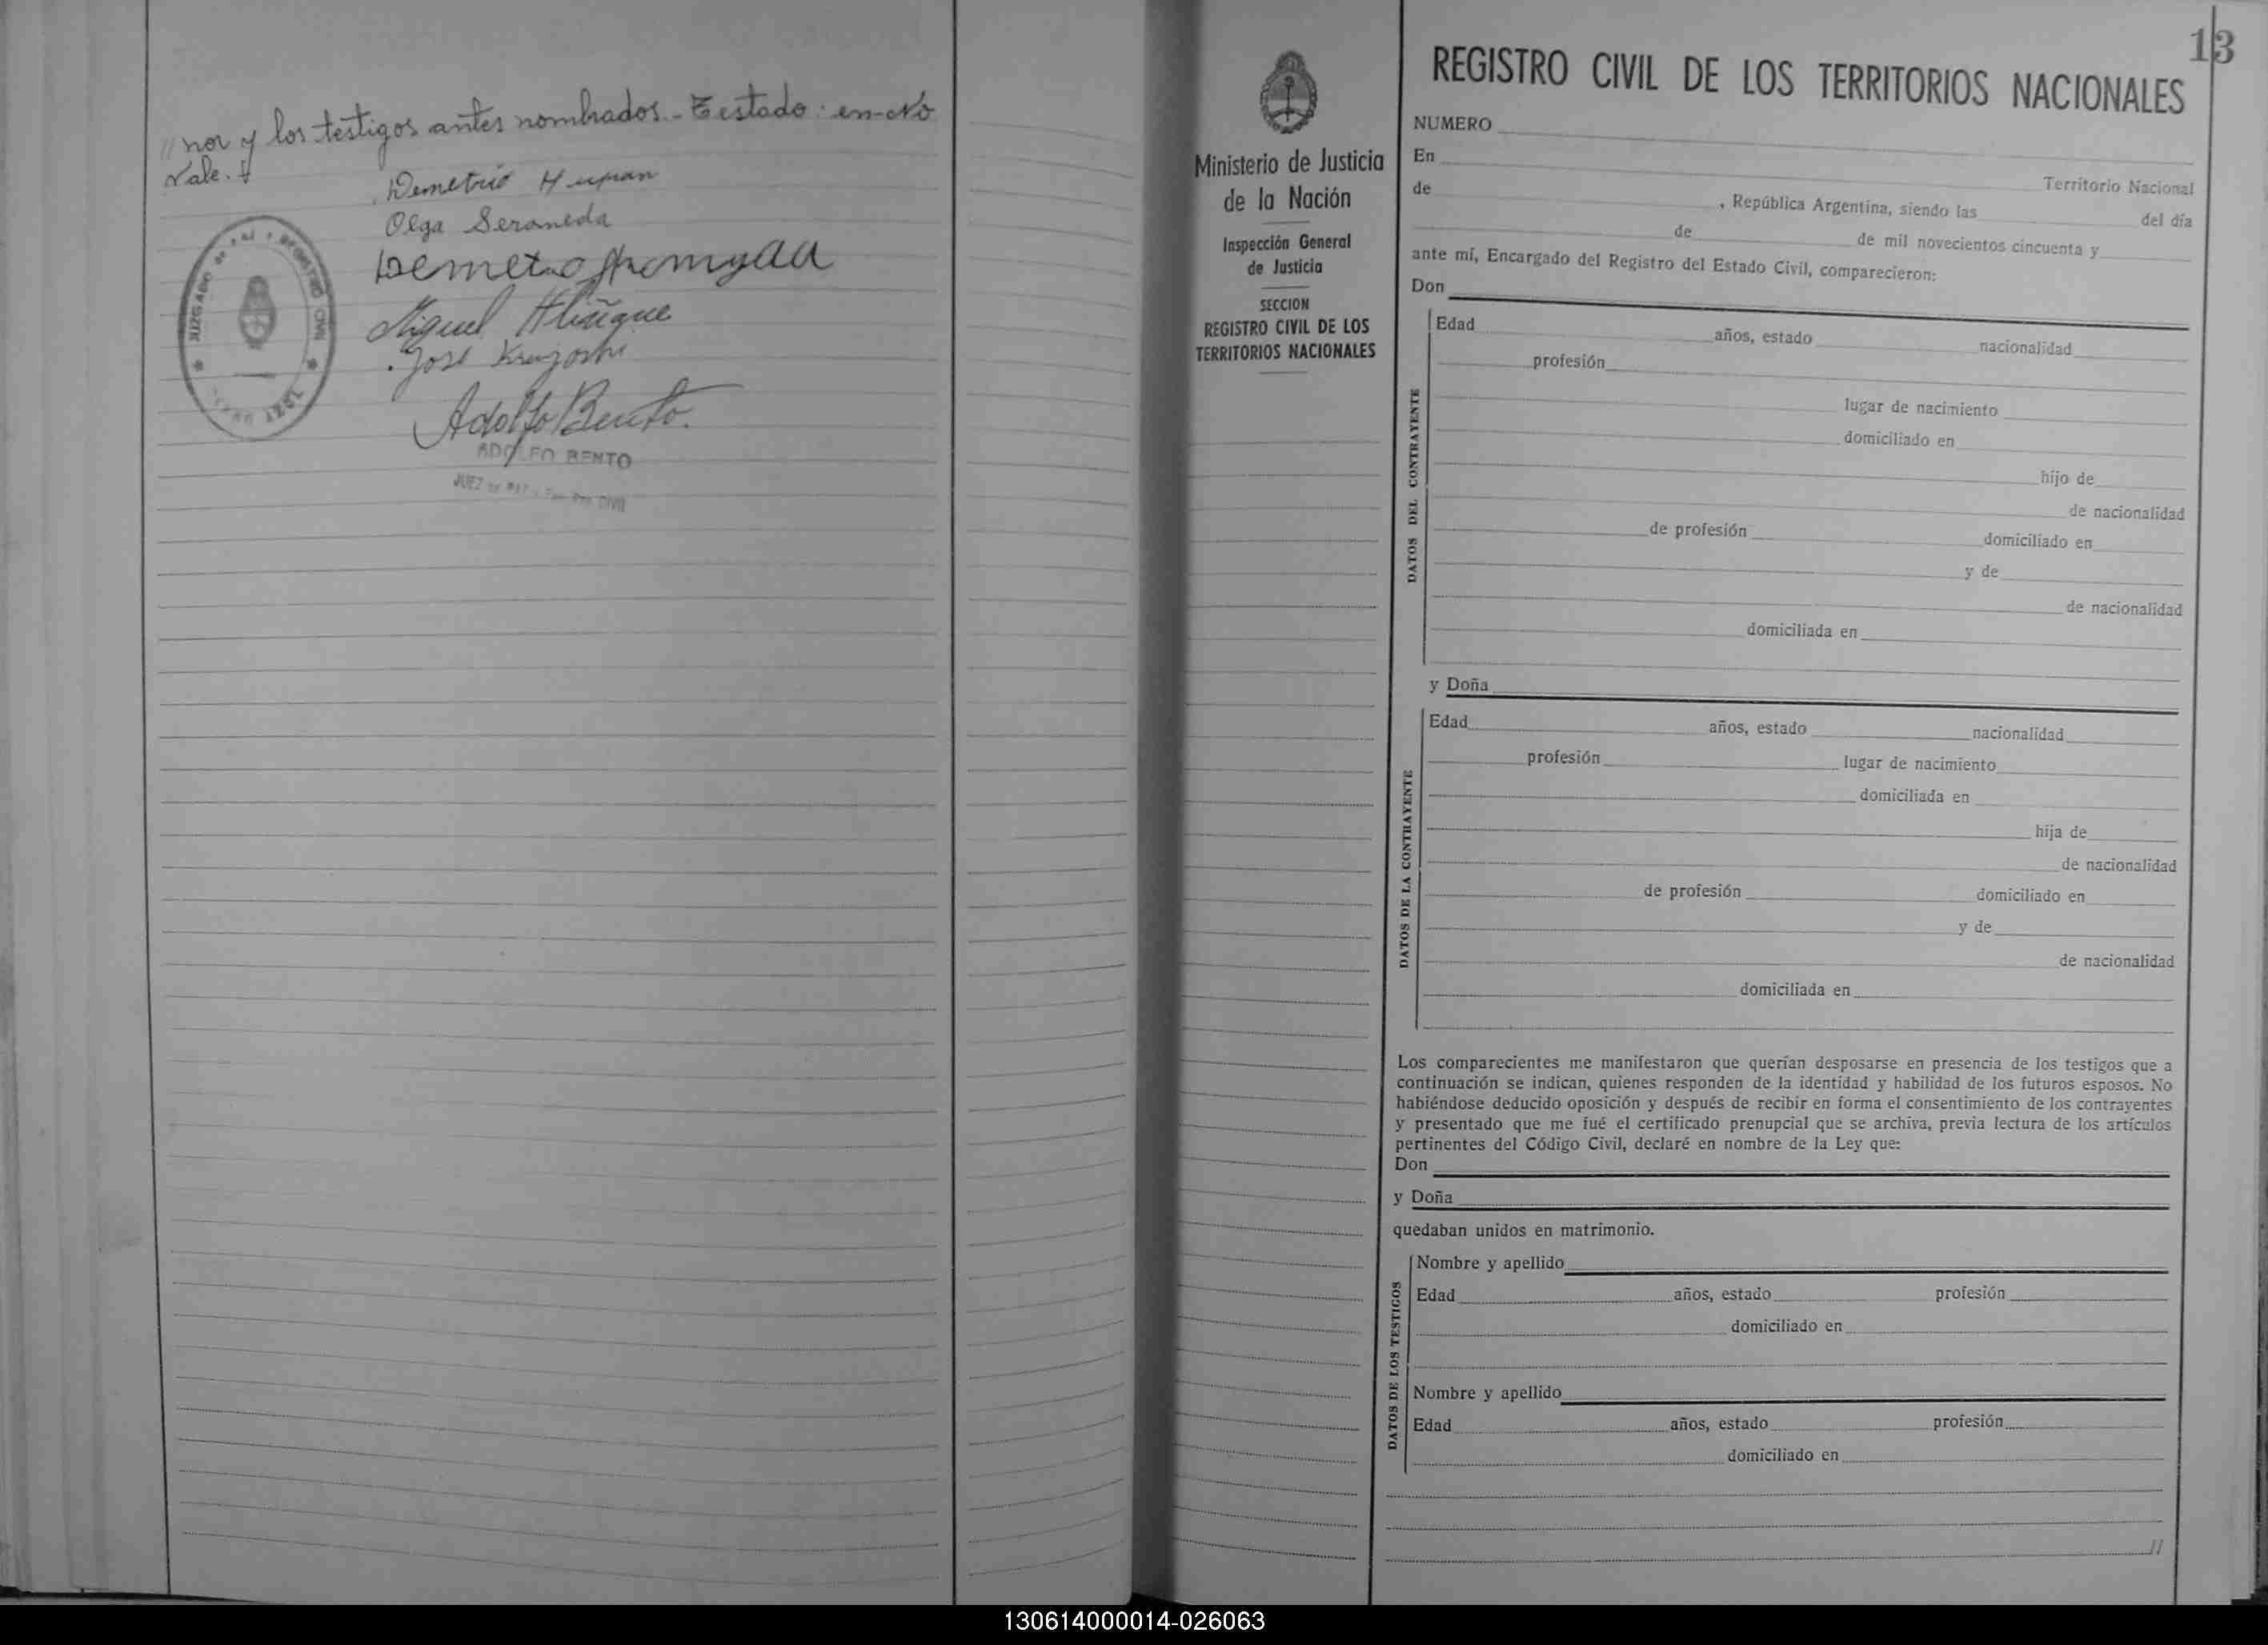 // nor y los testigos antes nombrados.- Testado: en-No
Vale.
Demetrio Hupan
Olga Seraneda
Demetrio
Miguel
José
Adolfo Bento.
ADOLFO BENTO
JUEZ DE PAZ CIVIL
JUZGADO DE PAZ Y REGISTRO CIVIL
13
REGISTRO CIVIL DE LOS TERRITORIOS NACIONALES
Ministerio de Justicia
de la Nación
Inspección General
de Justicia
SECCION
REGISTRO CIVIL DE LOS
TERRITORIOS NACIONALES
NUMERO
En
Territorio Nacional
de , República Argentina, siendo las del día
de de mil novecientos cincuenta y
ante mí, Encargado del Registro del Estado Civil, comparecieron:
Don
DATOS DEL CONTRAYENTE
Edad años, estado nacionalidad
profesión
lugar de nacimiento
domiciliado en
hijo de
de nacionalidad
de profesión domiciliado en
y de
de nacionalidad
domiciliada en
y Doña
DATOS DE LA CONTRAYENTE
Edad años, estado nacionalidad
profesión lugar de nacimiento
domiciliada en
hija de
de nacionalidad
de profesión domiciliado en
y de
de nacionalidad
domiciliada en
Los comparecientes me manifestaron que querían desposarse en presencia de los testigos que a
continuación se indican, quienes responden de la identidad y habilidad de los futuros esposos. No
habiéndose deducido oposición y después de recibir en forma el consentimiento de los contrayentes
y presentado que me fué el certificado prenupcial que se archiva, previa lectura de los artículos
pertinentes del Código Civil, declaré en nombre de la Ley que:
Don
y Doña
quedaban unidos en matrimonio.
DATOS DE LOS TESTIGOS
Nombre y apellido
Edad años, estado profesión
domiciliado en
Nombre y apellido
Edad años, estado profesión
domiciliado en
//
130614000014-026063